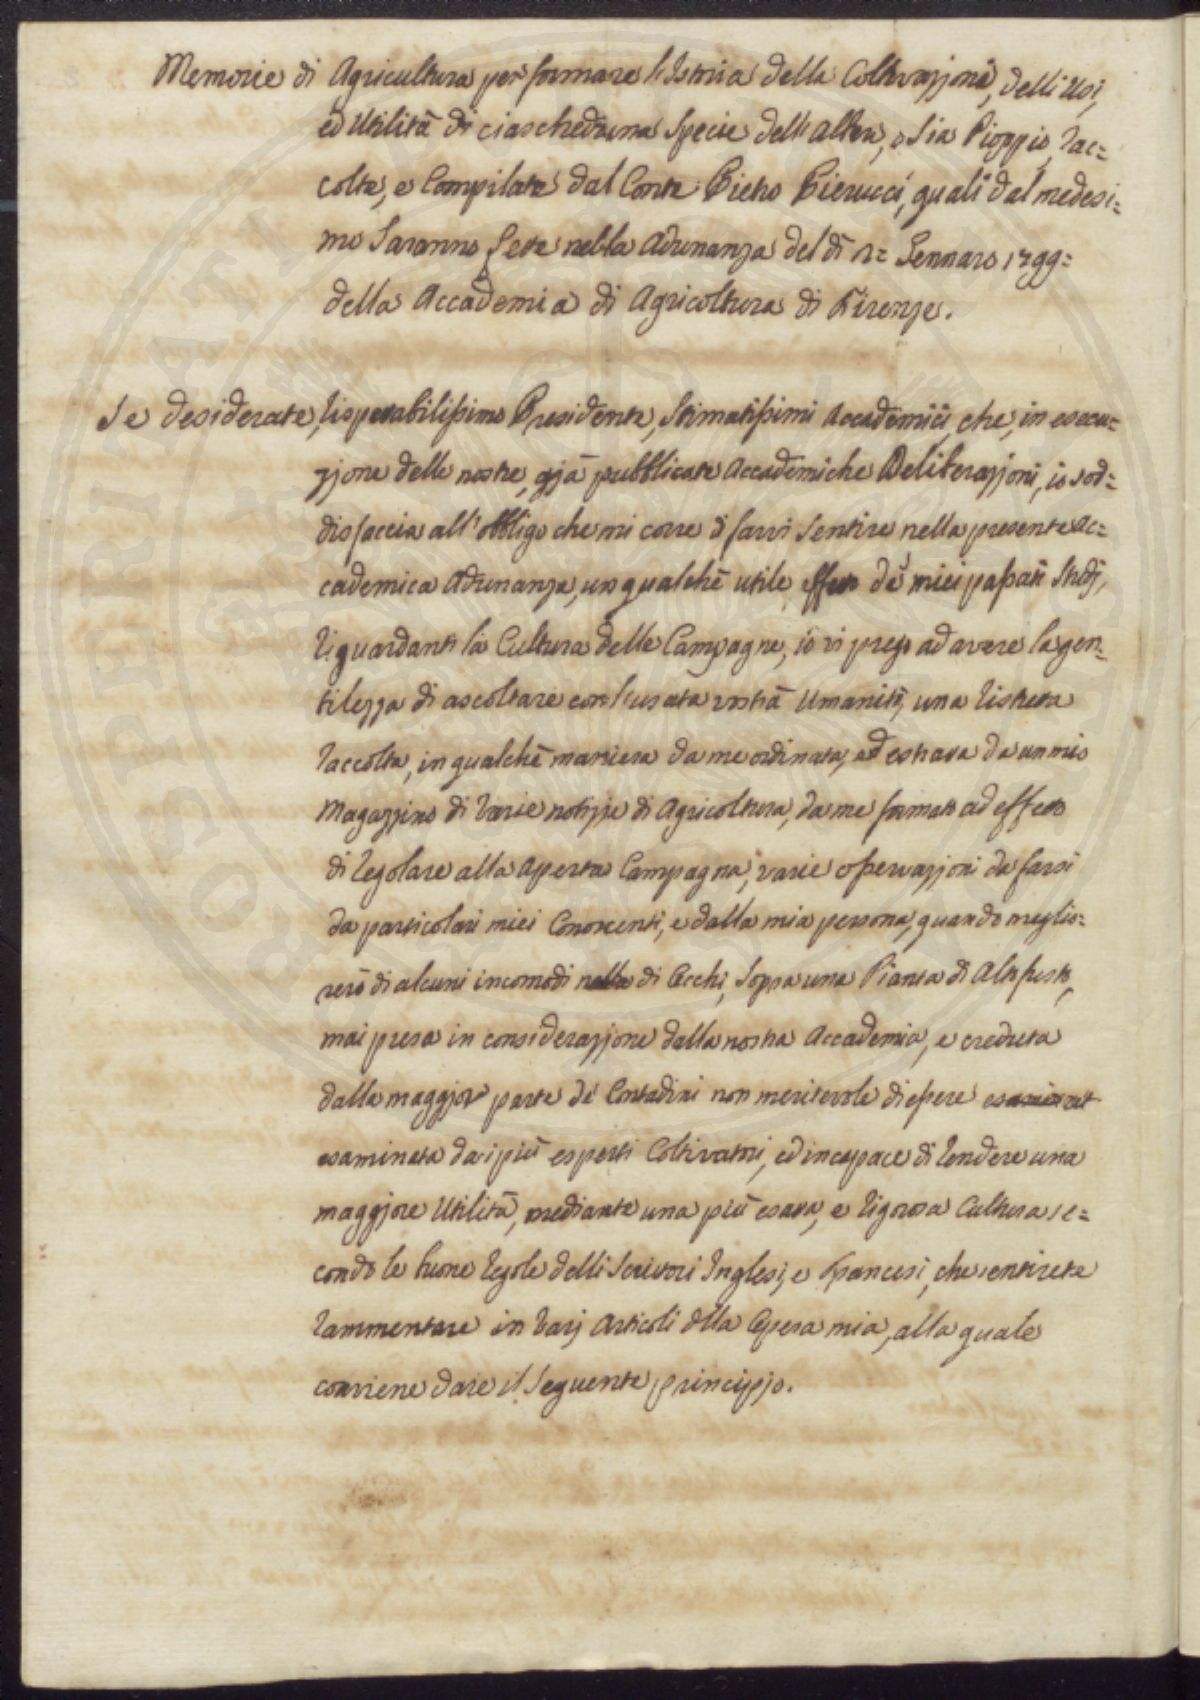 Memorie di Agricultura per formare l'Istoria della Coltivazjone, delli Usi,
ed Utilità di ciascheduna Specie dell'Albero, o sia Pioppio, rac=
colte, e Compilate dal Conte Pietro Pierucci, quali dal medesi=
mo saranno lette nella Adunanza del dì 2= Gennaro 1799=
della Accademia di Agricoltura di Firenze.
Se desiderate, rispettabilissimo Presidente, Stimatissimi Accademici, che, in esecu=
zjone delle nostre, gjà pubblicate Accademiche Deliberazjoni, io sod=
disfaccia all'obbligo che mi corre di farvi sentire nella presente Ac=
cademica Adunanza, un qualche utile effetto de' miei passati Studj,
riguardanti la Cultura delle Campagne, io vi prego ad avere la gen=
tilezza di ascoltare con l'usata vostra Umanità, una ristretta
raccolta, in qualche maniera da me ordinata, ed estratta da un mio
Magazzino di varie notizje di Agricoltura, da me formato ad effetto
di regolare alla aperta Campagna, varie osservazjoni da farsi
da particolari miei Conoscenti, e dalla mia persona, quando meglio=
rerò di alcuni incomodi nella di Occhi, sopra una Pianta di Alto fusto,
mai presa in considerazjone dalla nostra Accademia, e creduta
dalla maggjor parte de' Contadini non meritevole di essere esaminat
esaminata da i più esperti Coltivatori, ed incapace di rendere una
maggjore Utilità, mediante una più esatta, e rigorosa Cultura se=
condo le buone regole delli Scrittori Inglesi, e Francesi, che sentirete
rammentare in varj Articoli della Opera mia, alla quale
conviene dare il seguente principjo.